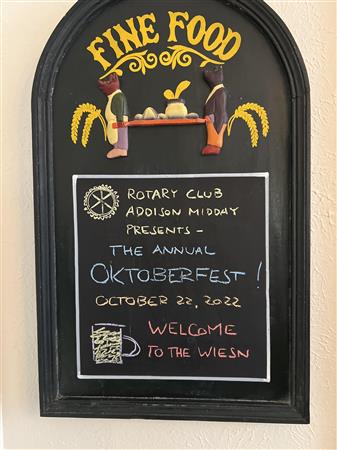 FINE FOOD
ROTARY CLUB
ADDISON MIDDAY
PRESENTS -
THE ANNUAL
OKTOBERFEST!
OCTOBER 22, 2022
WELCOME
TO THE WIESN